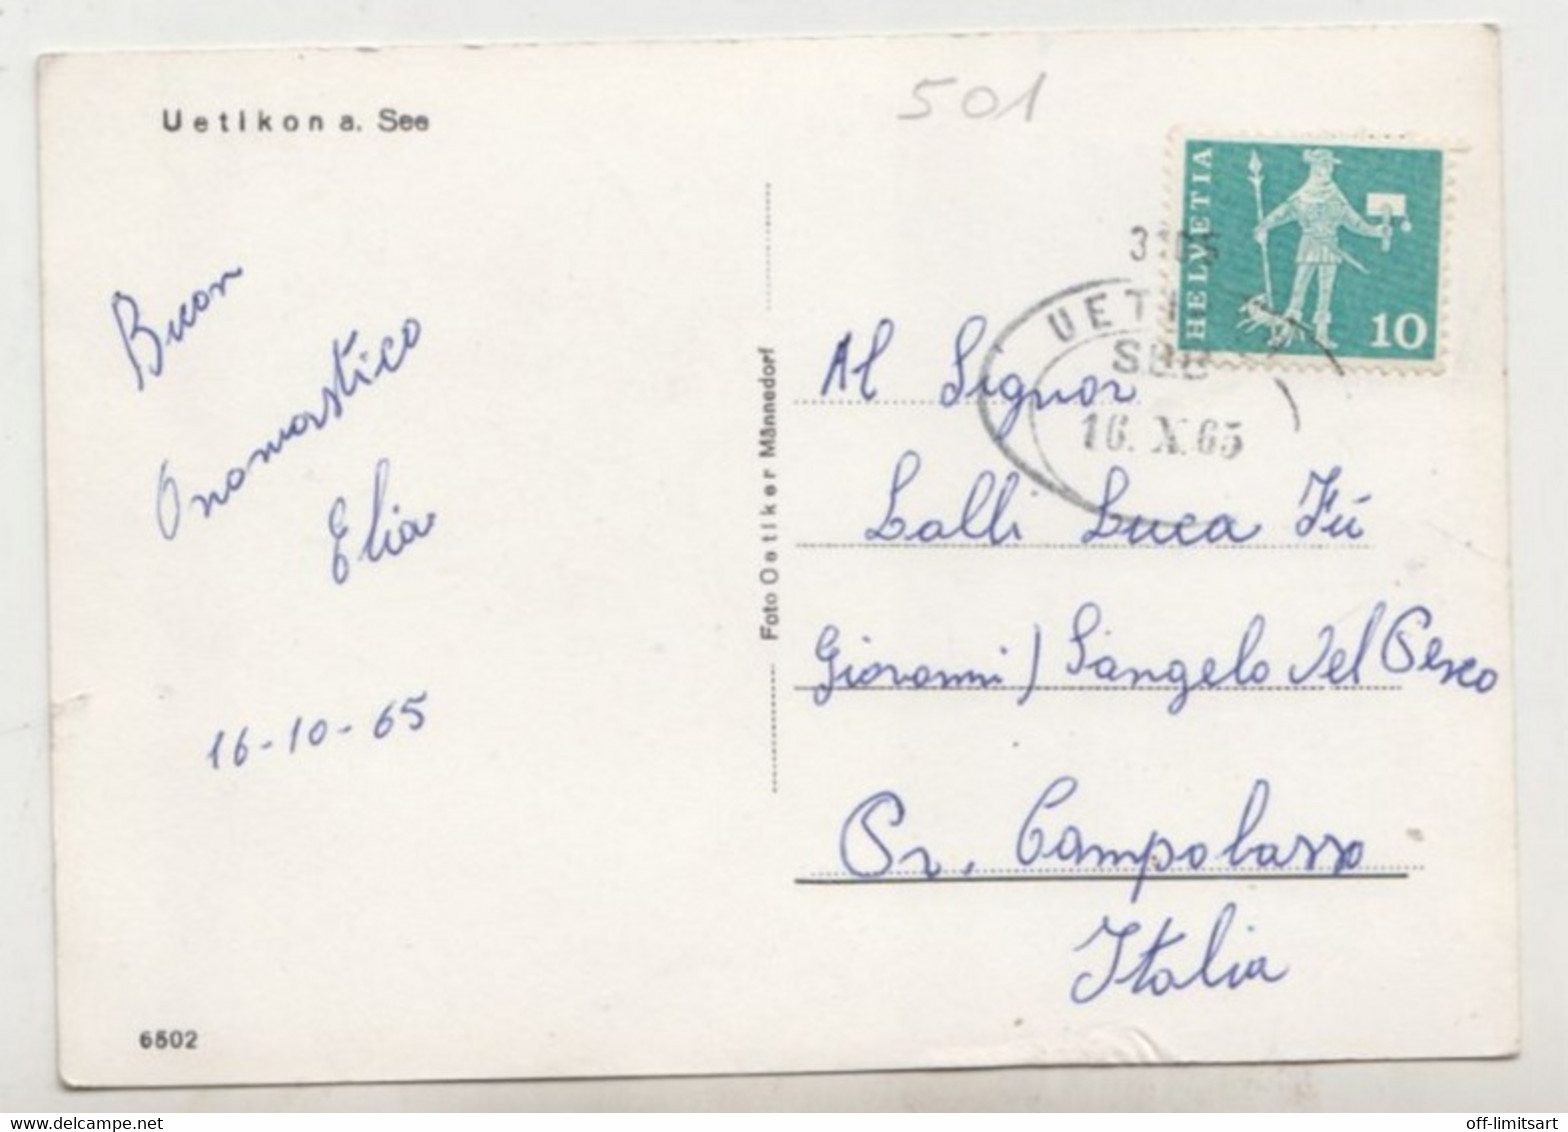 Uetikon a. See
501
HELVETIA
10
UET
SBB
16. X. 65
Buon
Onomastico
Elia
16-10-65
Foto Oetiker Männedorf
Al Signor
Lalli Luca Fù
Giovanni) S'angelo Del Pesco
Pr. Campobasso
Italia
6502
off-limitsart